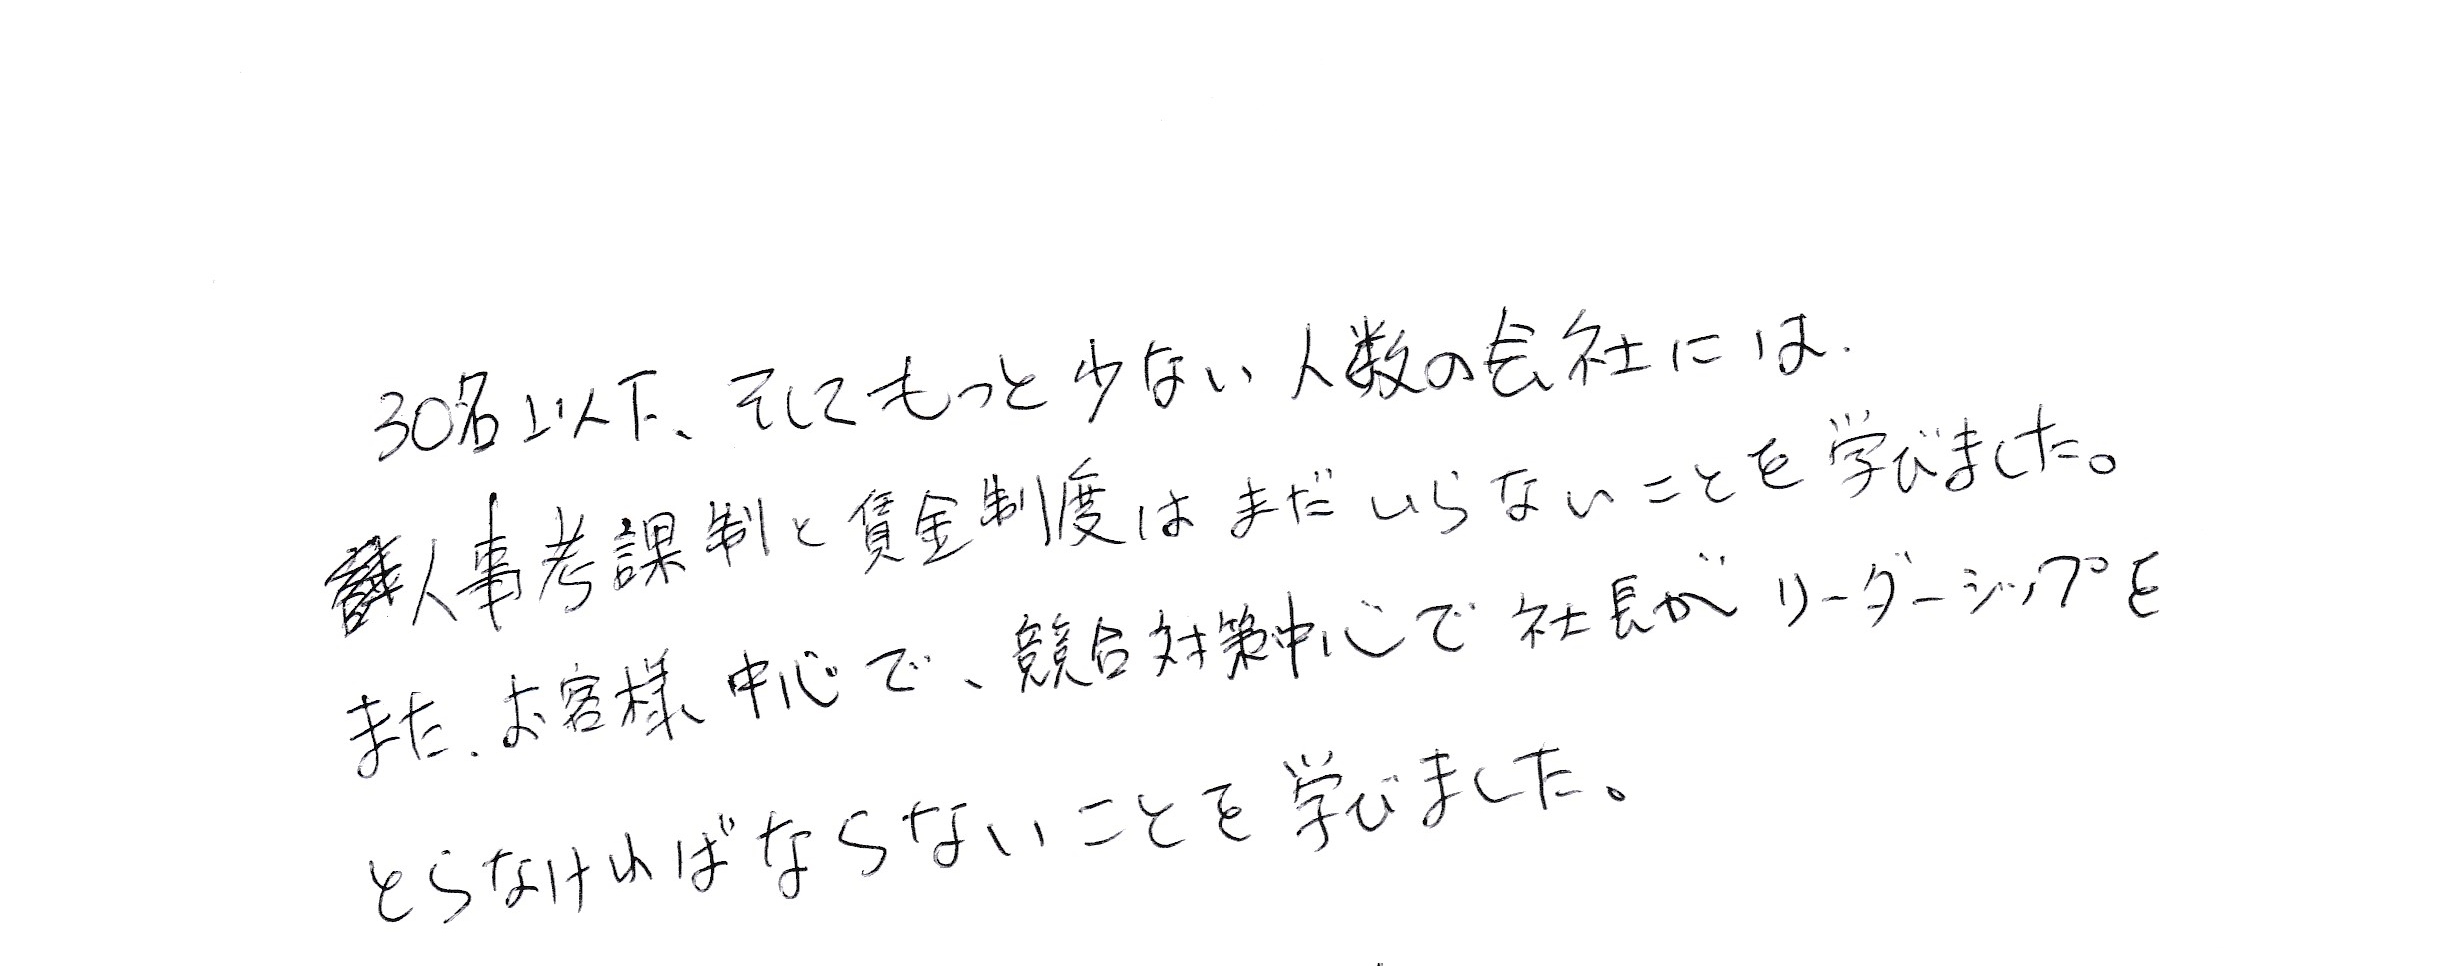 30名以下、そしてもっと少ない人数の会社には、
人事考課制と賃金制度はまだいらないことを学びました。
また、お客様中心で、競合対策中心で社長がリーダーシップを
とらなければならないことを学びました。